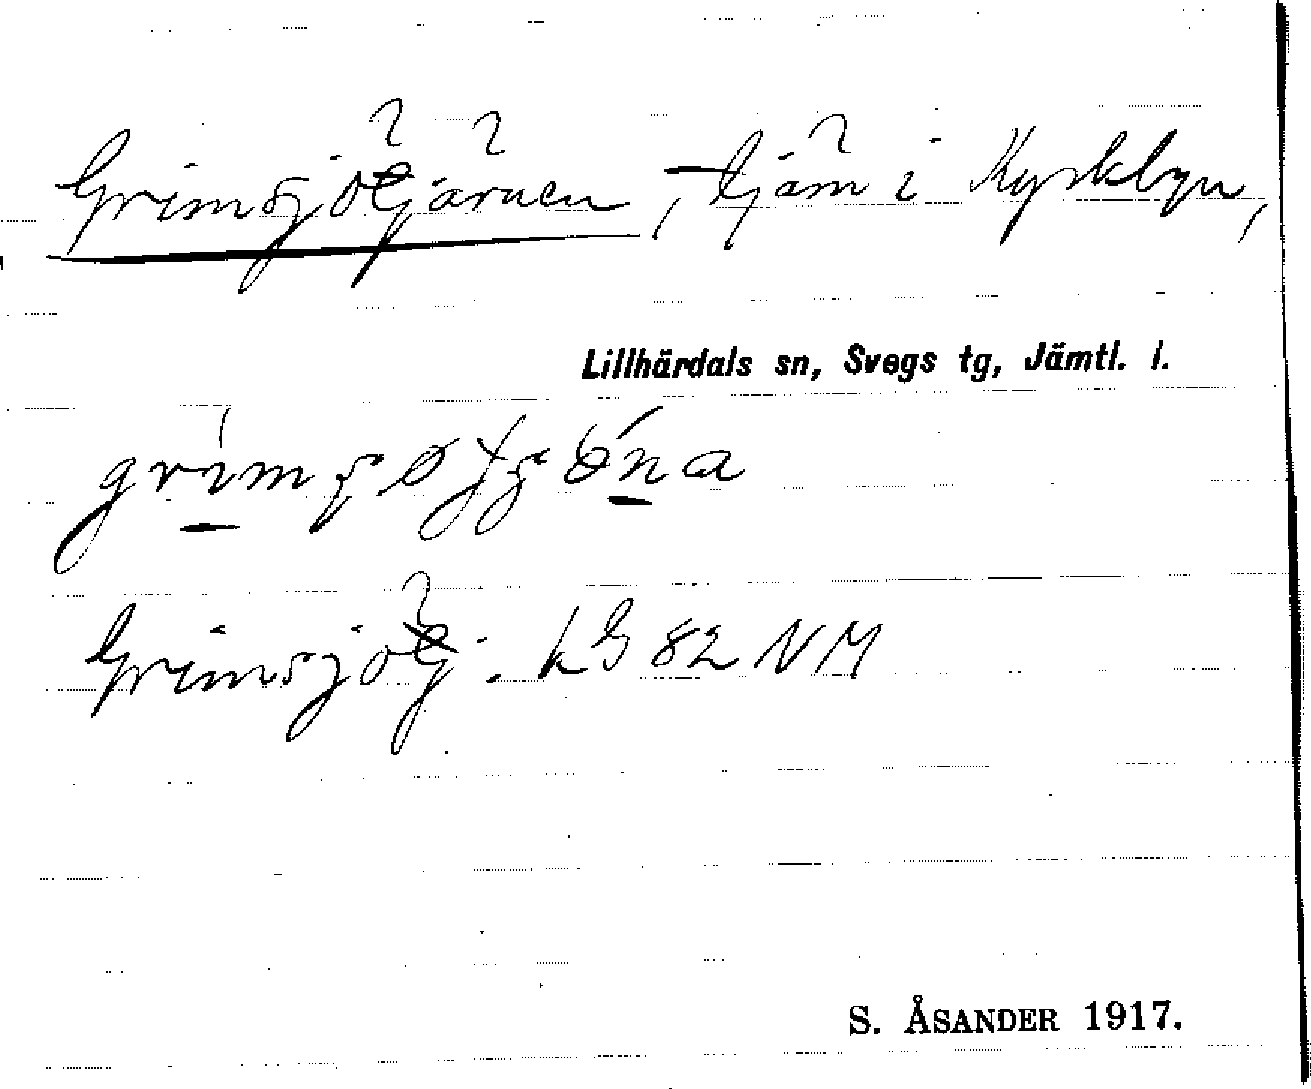 Grimsjötjärnen, tjärn i Kyrkbyn,
Lillhärdals sn, Svegs tg, Jämtl. l.
Grimsjötj. kG 82 NM
S. ÅSANDER 1917.